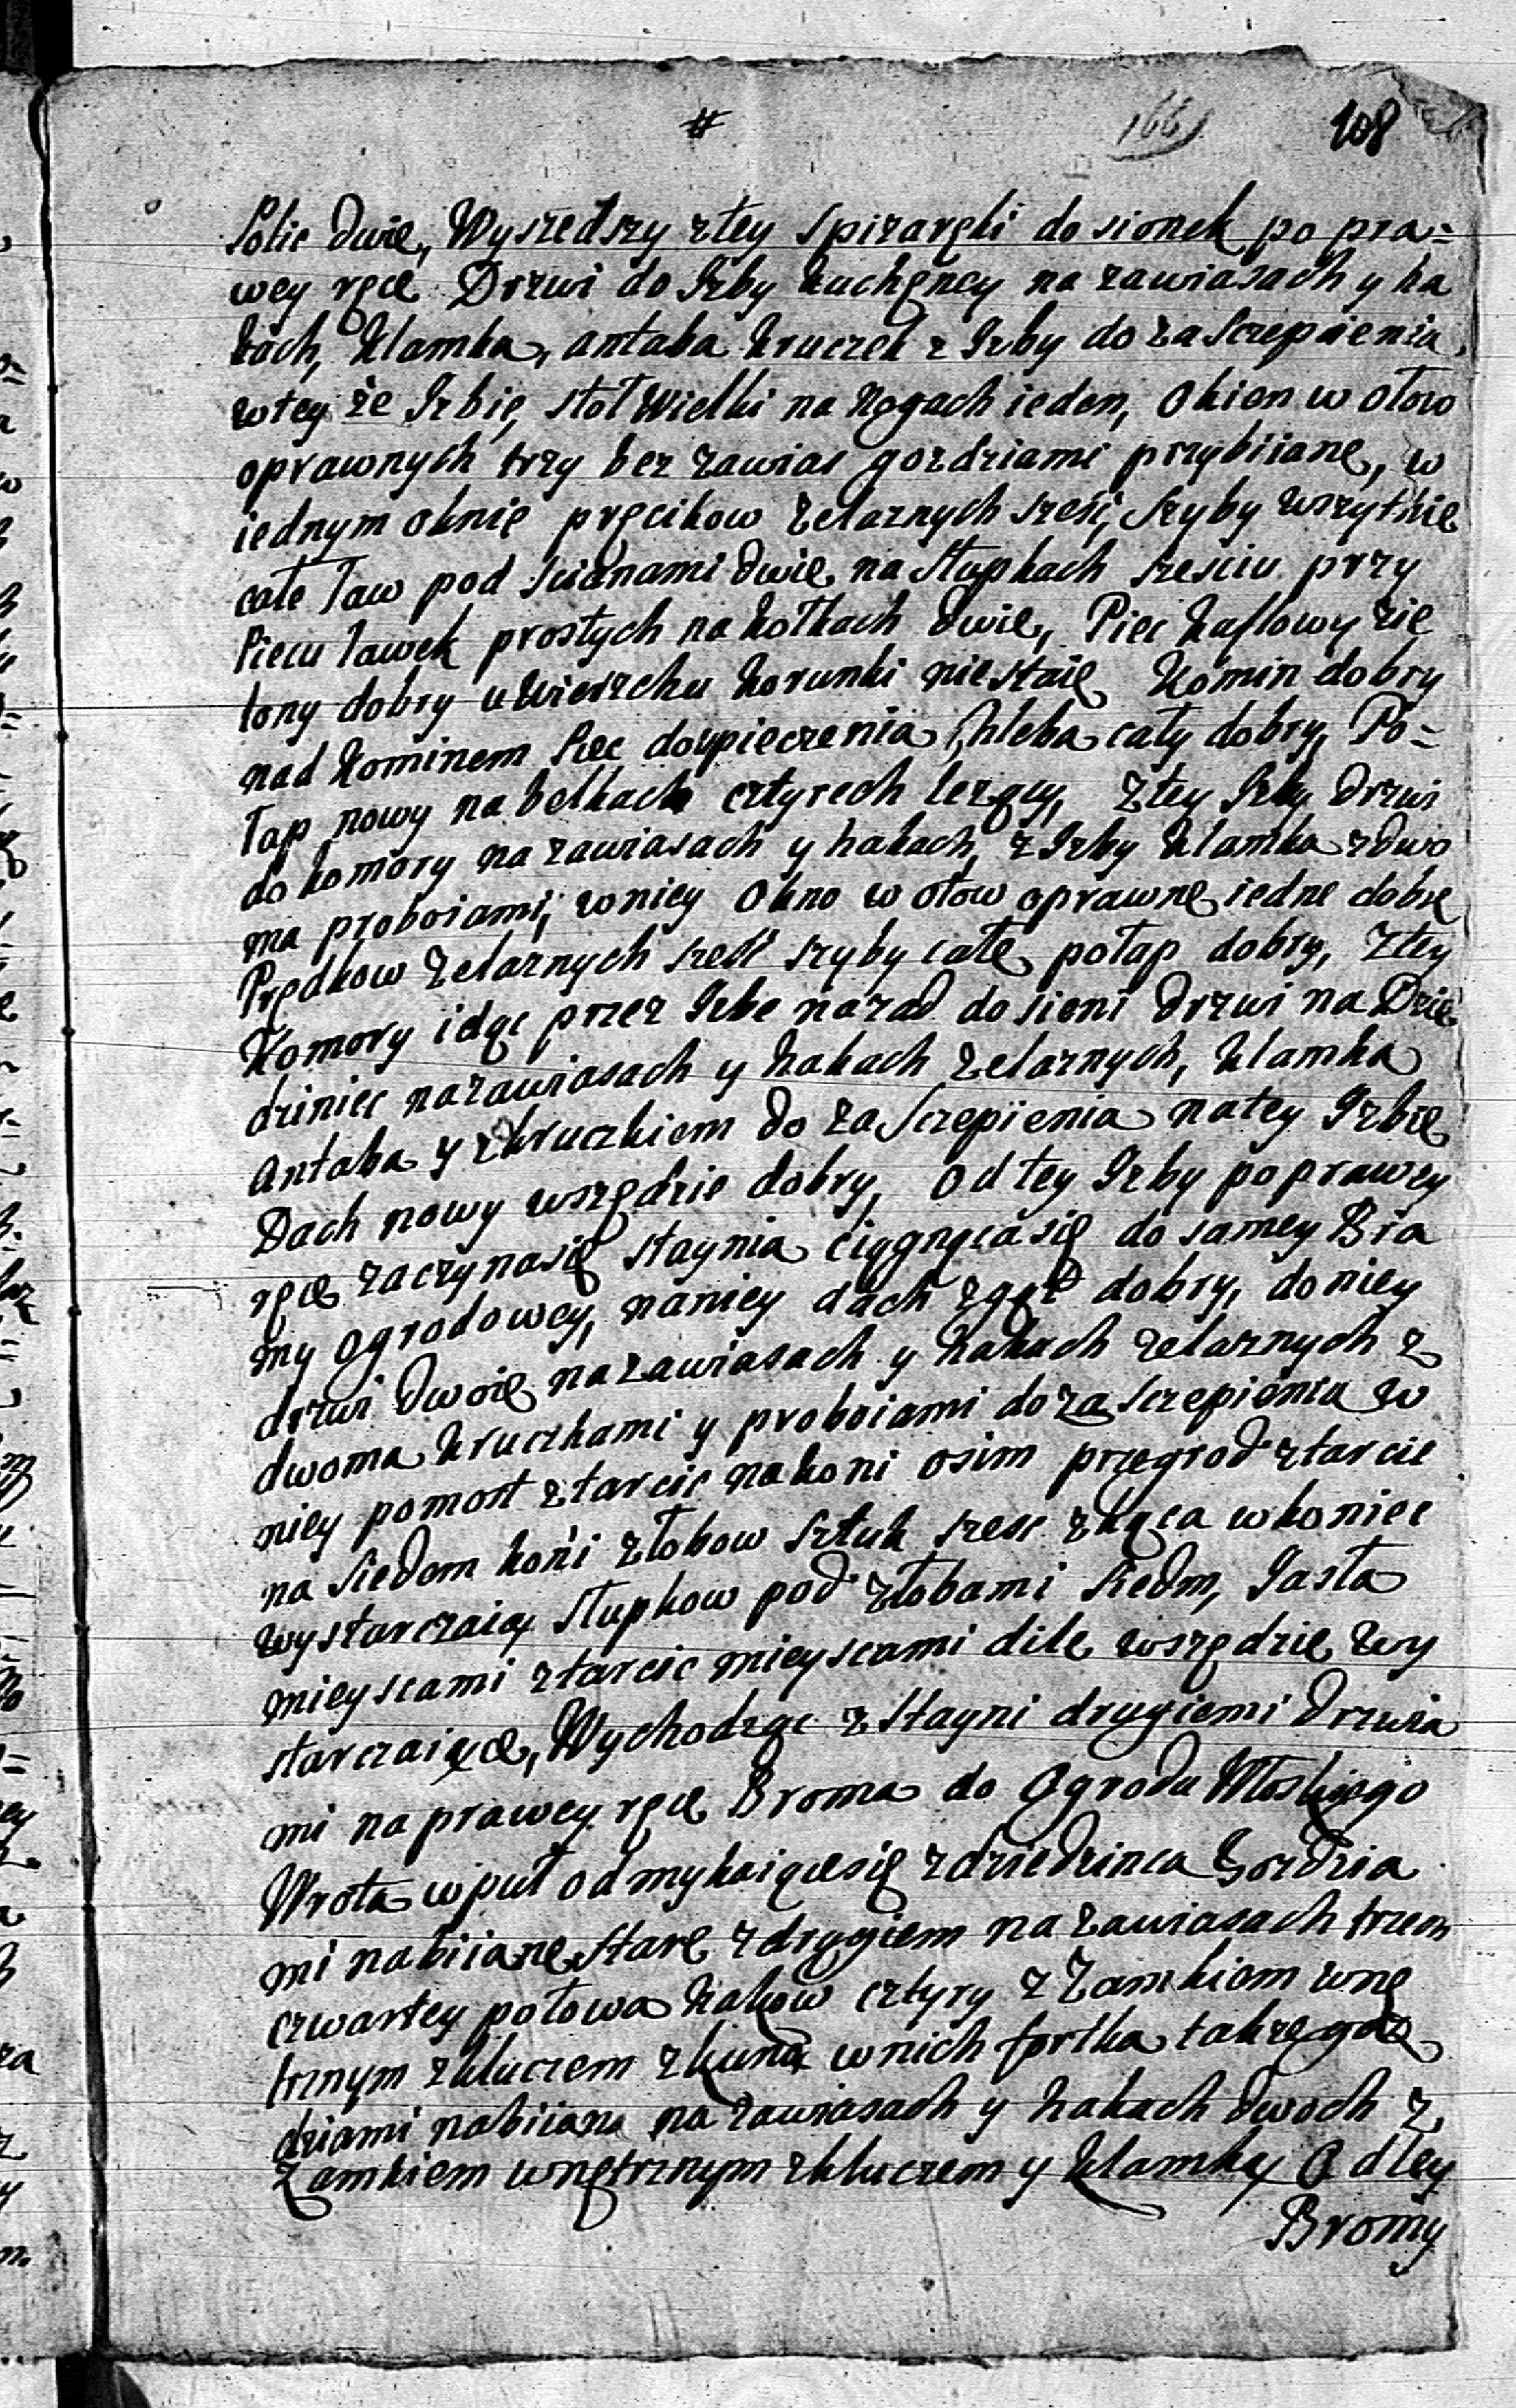 # 166 108
Solic dwie, Wyszedszy z tey Spizargki do sionek po pra=
wey ręce Drzwi do Izby kuchęney na zawiasach y ha
kach, klamka, antaba kruczek z Izby do zasczepienia,
w tey że Izbie, stoł Wielki na Nogach ieden, Okien w ołow
oprawnych trzy bez zawias gozdziami przybiiane, w
iednym oknie pręcikow żelaznych sześć, szyby wszytkie
całe Ław pod scianami dwie na słupkach szesciu przy
Piecu ławek prostych na kołkach dwie, Piec kaflowy zie
lony dobry u Wierzchu korunki niestaie Komin dobry
nad kominem Piec do upieczenia Chleba cały dobry, Po=
łap nowy na belkach cztyrech leżący, z tey Izby drzwi
do komory na zawiasach y hakach, z Izby klamka z dwo
ma proboiami, w niey Okno w ołow oprawne iedne dobre
Prędkow żelaznych sześć szyby całe, połap dobry, z tey
Komory idąc przez Izbe nazad do sieni drzwi na Dzie
dziniec na zawiasach y hakach żelaznych, klamka
Antaba y z kruczkiem do zasczepienia na tey Izbie
Dach nowy wszędzie dobry, Od tey Izby po prawey
ręce zaczyna się staynia ciągnąca się do samey Bra
my ogrodowey, na niey dach zgąt dobry, do niey
drzwi dwoie na zawiasach y hakach żelaznych z
dwoma kruczkami y proboiami do zasczepienia w
niey pomost z tarcic na koni osim przegrod z tarcic
na siedem koni złobow sztuk szesc z końca w koniec
wystarczaią słupkow pod złobami siedm, Jasła
mieyscami z tarcic mieyscami dile wszędzie wy
starczaiące, Wychodząc z stayni drugiemi drzwia
mi na prawey ręce Broma do Ogrodu Włoskiego
Wrota w puł odmykaiące się z dziedzinca Gozdzia
mi nabiiane stare z drągiem na zawiasach trzem
czwartey połowa hakow cztyry z Zamkiem wnę
trznym z kluczem z kuną w nich fortka także goz
dziami nabiiana na zawiasach y hakach dwoch z
Zamkiem wnętrznym z kluczem y klamką Od tey
Bromy